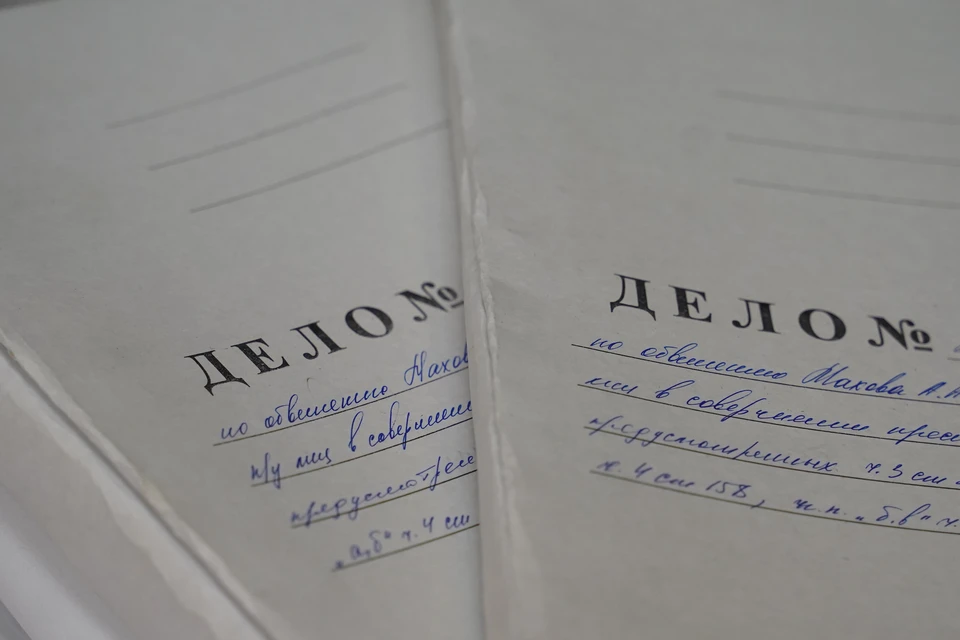 ДЕЛО №
по обвинению Махов
п/у лиц в совершении
предусмотрен
"а,б" ч. 4 ст
ДЕЛО №
по обвинению Махова А.Н
лиц в совершении прес
предусмотренных ч. 3 ст
ч. 4 ст 158, ж.п. "б.в" ч.